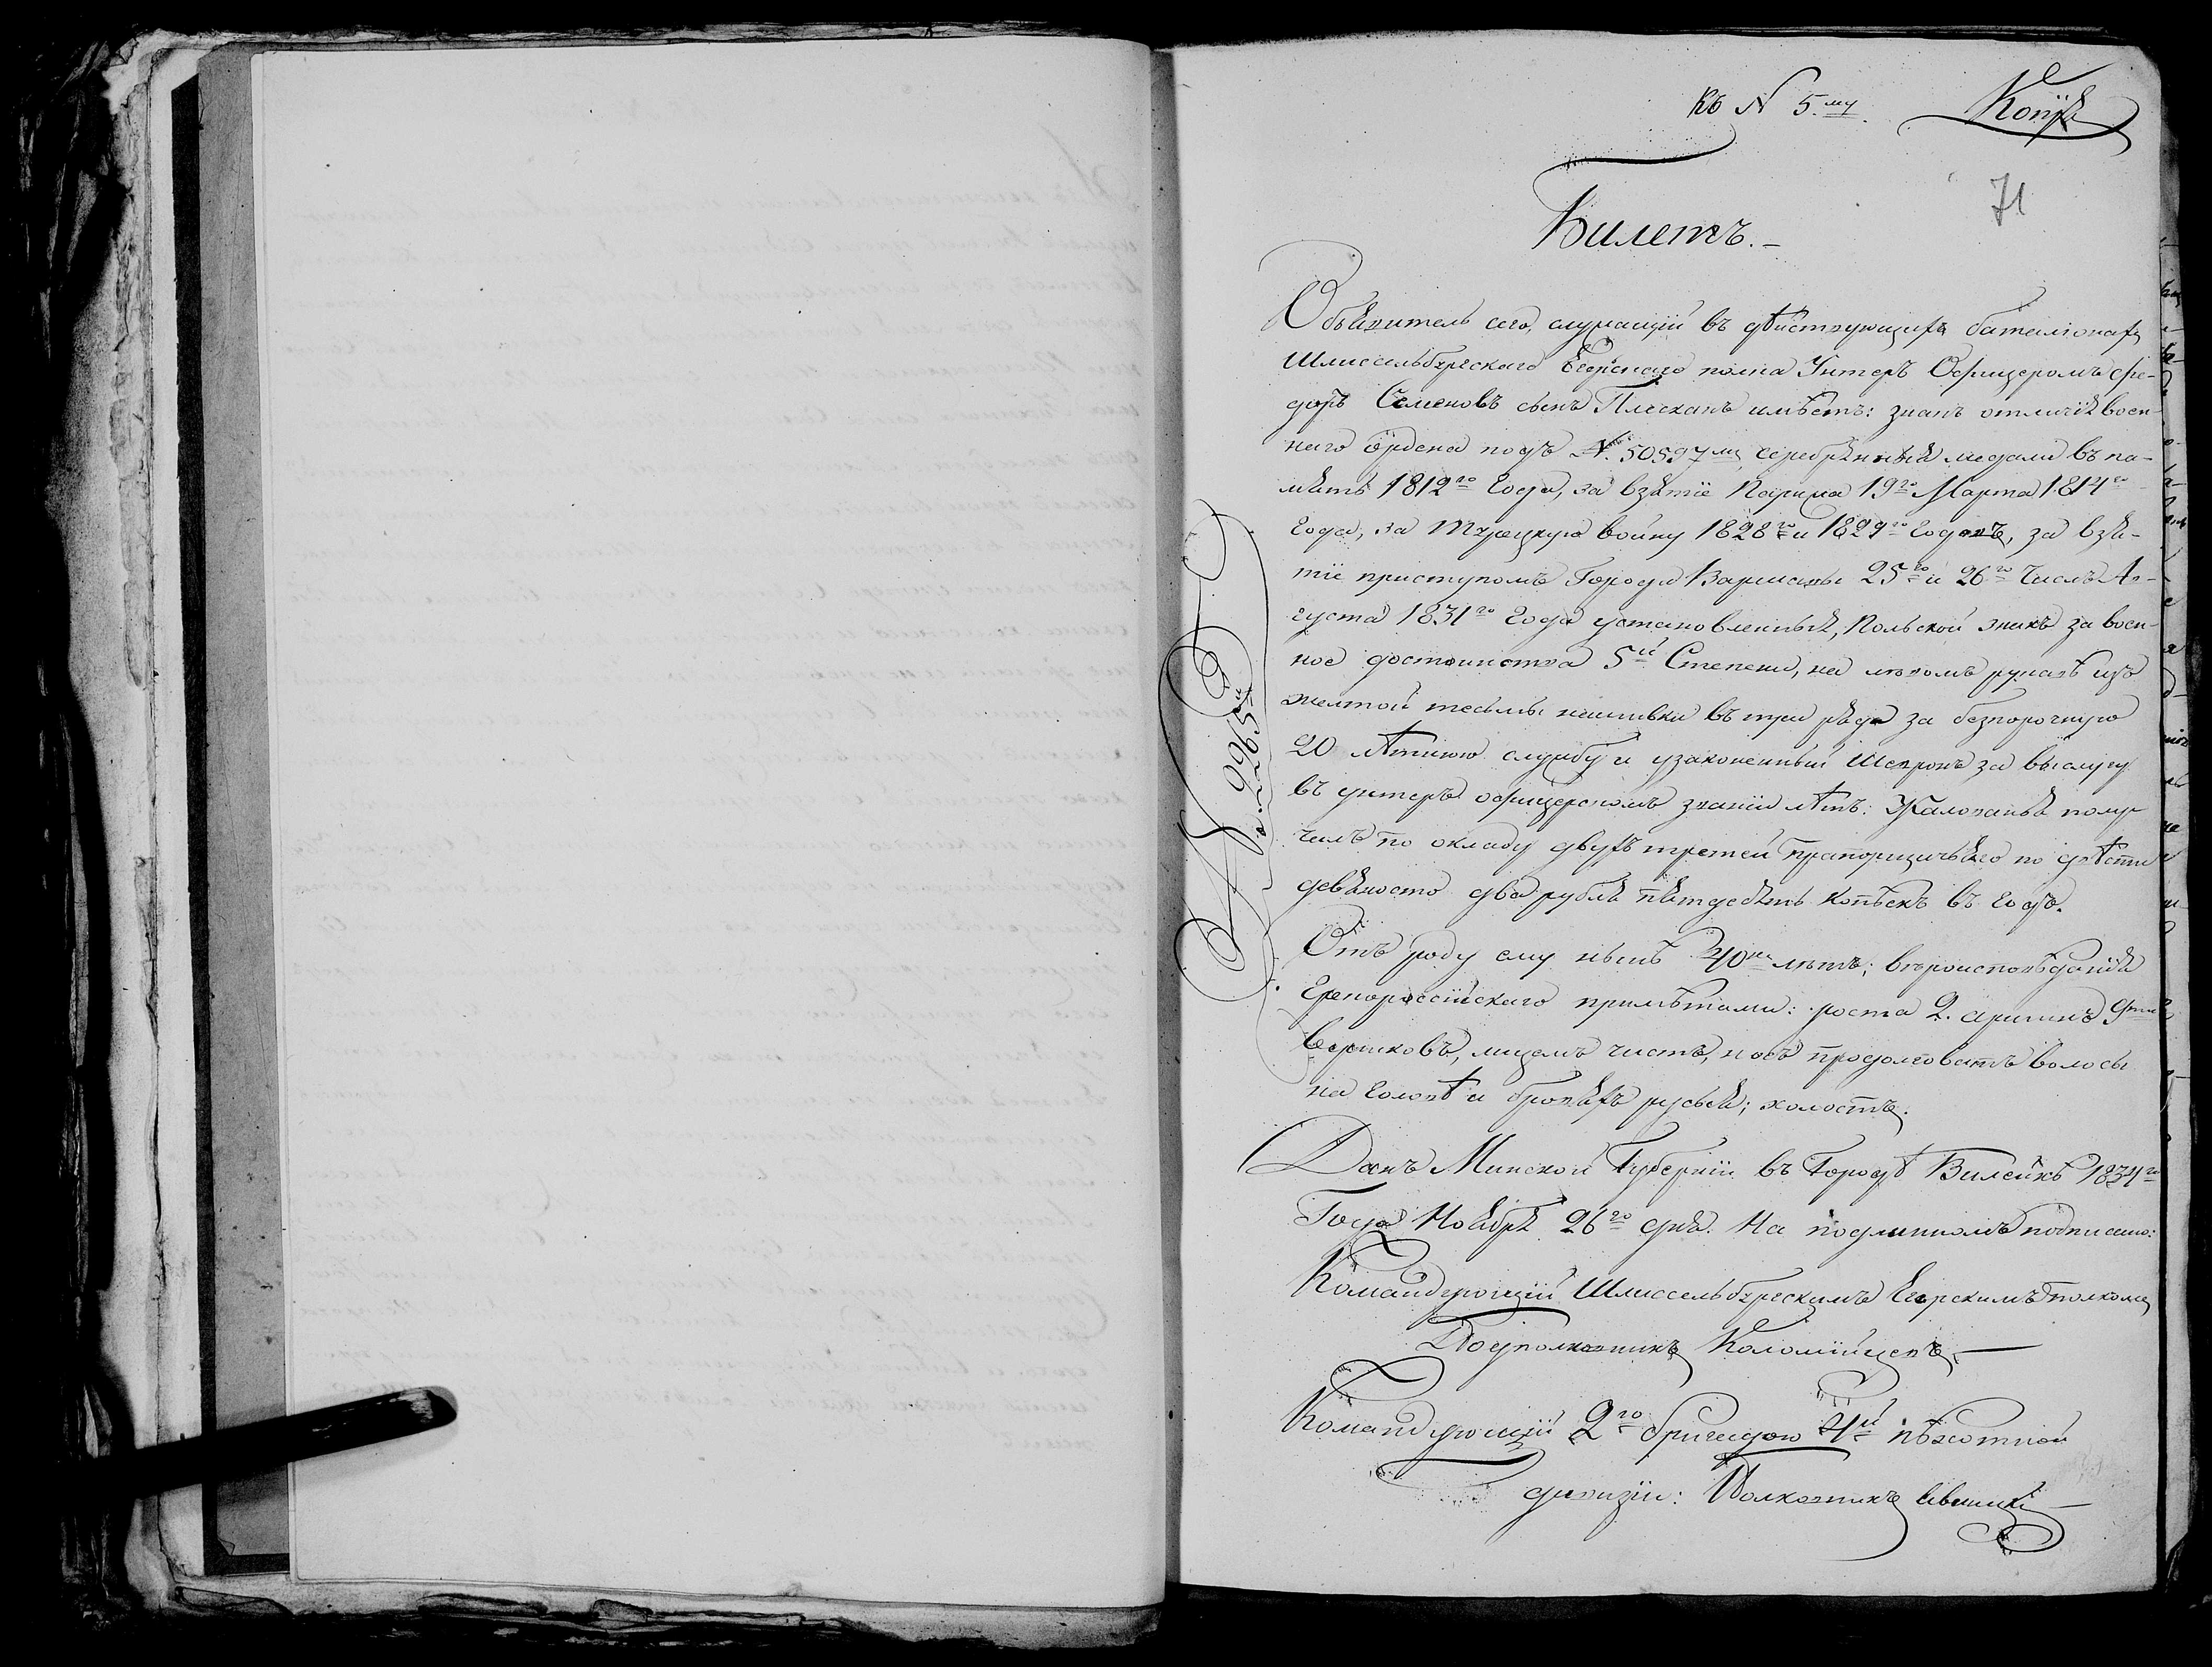 Къ N 5.му Копія
71
Билетъ.-
Объявитель сего, служащій въ дѣйствующихъ баталіонахъ
Шлиссельбургскаго Егерскаго полка Унтеръ Офицеромъ Фе-
доръ Семеновъ сынъ имѣетъ: знакъ отличія воен-
наго ордена подъ №. 50597му, серебряныя медали въ па-
мять 1812го Года, за взятіе Парижа 19го Марта 1814го
Года, за Турецкую войну 1828го и 1829го Годовъ, за взя-
тіе приступомъ Города Варшавы 25го и 26го Числъ Ав-
густа 1831го Года установленныя, Польской знакъ за воен-
ное достоинства 5й Степени, на лѣвомъ рукавѣ изъ
желтой тесьмы нашивки въ три ряда за безпорочную
20 лѣтнюю службу и узаконенный Шевронъ за выслугу
въ унтеръ офицерскомъ званіи лѣтъ: Жалованья полу-
чалъ по окладу двухъ третей Прапорщичьяго по двѣсти
девяносто два рубля пятдесятъ копѣекъ въ Годъ.
Отъ роду ему нынѣ 40 лѣтъ; вѣроисповѣданія
Грекороссійскаго примѣтами: роста 2. аршинъ 9ти
вершковъ, лицемъ чистъ, носъ продолговатъ волосы
на головѣ и бровяхъ русыя; холостъ.
Данъ Минской Губерніи въ Городѣ Вилейкѣ 1834го
Года Ноября 26го дня. На подлинномъ подписано:
Командующій Шлиссельбургскимъ Егерскимъ полкомъ
Подполковникъ Коломійцевъ.
Командующій 2го бригадою 4й пѣхотной
дивизіи: Полковникъ
№ 9965й